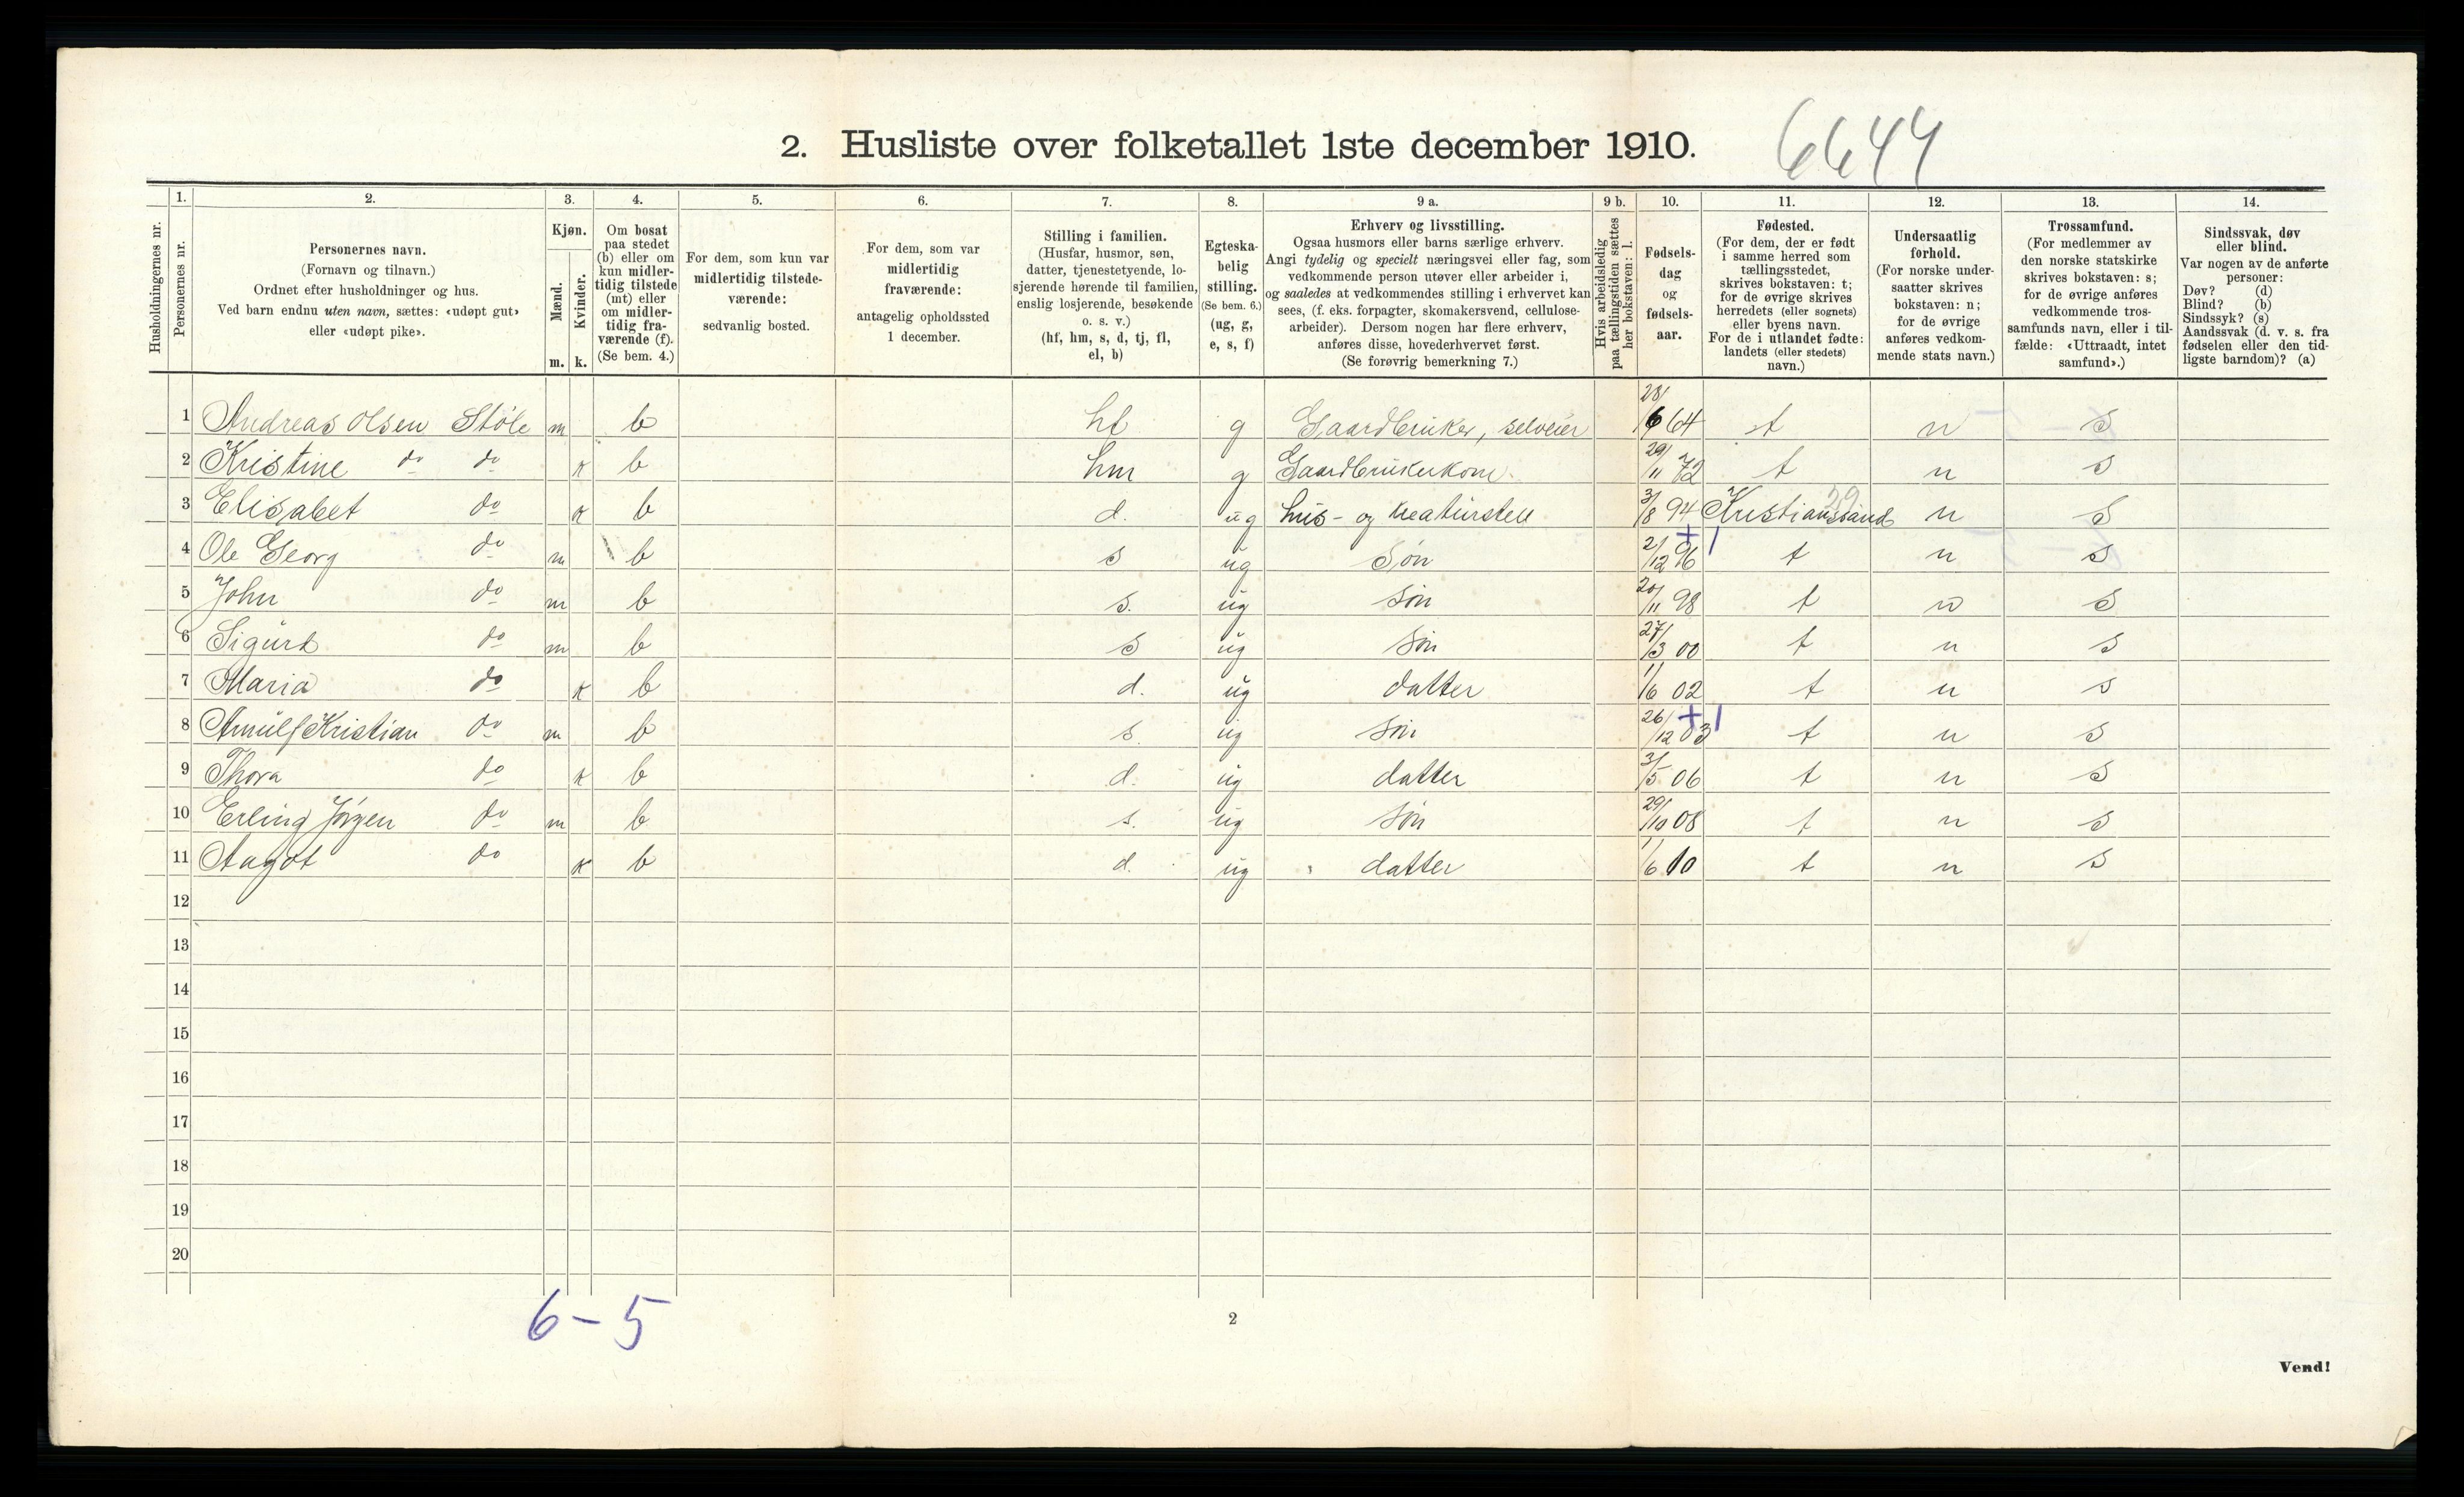 2. Husliste over folketallet 1ste december 1910.
6644
Husholdningernes nr.
1.
Personernes nr.
2.
Personernes navn.
(Fornavn og tilnavn.)
Ordnet efter husholdninger og hus.
Ved barn endnu uten navn, sættes: «udøpt gut»
eller «udøpt pike».
3.
Kjøn.
Mænd.
Kvinder.
m. k.
4.
Om bosat
paa stedet
(b) eller om
kun midler-
tidig tilstede
(mt) eller
om midler-
tidig fra-
værende (f).
(Se bem. 4.)
5.
For dem, som kun var
midlertidig tilstede-
værende:
sedvanlig bosted.
6.
For dem, som var
midlertidig
fraværende:
antagelig opholdssted
1 december.
7.
Stilling i familien.
(Husfar, husmor, søn,
datter, tjenestetyende, lo-
sjerende hørende til familien,
enslig losjerende, besøkende
o. s. v.)
(hf, hm, s, d, tj, fl,
el, b)
8.
Egteska-
belig
stilling.
(Se bem. 6.)
(ug, g,
e, s, f)
9 a.
Erhverv og livsstilling.
Ogsaa husmors eller barns særlige erhverv.
Angi tydelig og specielt næringsvei eller fag, som
vedkommende person utøver eller arbeider i,
og saaledes at vedkommendes stilling i erhvervet kan
sees, (f. eks. forpagter, skomakersvend, cellulose-
arbeider). Dersom nogen har flere erhverv,
anføres disse, hovederhvervet først.
(Se forøvrig bemerkning 7.)
9 b.
Hvis arbeidsledig
paa tællingstiden sættes
her bokstaven: l.
10.
Fødsels-
dag
og
fødsels-
aar.
11.
Fødested.
(For dem, der er født
i samme herred som
tællingsstedet,
skrives bokstaven: t;
for de øvrige skrives
herredets (eller sognets)
eller byens navn.
For de i utlandet fødte:
landets (eller stedets)
navn.)
12.
Undersaatlig
forhold.
(For norske under-
saatter skrives
bokstaven: n;
for de øvrige
anføres vedkom-
mende stats navn.)
13.
Trossamfund.
(For medlemmer av
den norske statskirke
skrives bokstaven: s;
for de øvrige anføres
vedkommende tros-
samfunds navn, eller i til-
fælde: «Uttraadt, intet
samfund».)
14.
Sindssvak, døv
eller blind.
Var nogen av de anførte
personer:
Døv? (d)
Blind? (b)
Sindssyk? (s)
Aandssvak (d. v. s. fra
fødselen eller den tid-
ligste barndom)? (a)
1 Andreas Olsen Støle m b hf g Gaardbruker, selveier 28/6 64 t n s
2 Kristine do do k b hm g Gaardbrukerkone. 29/11 72 t n s
3 Elisabet do k b d. ug hus- og kreaturstell 3/8 94 Kristianssand 29 n s
4 Ole Georg do m b s ug Søn 2/12 96 + 1 t n s
5 John do m b s. ug søn 20/11 98 t n s
6 Sigurd do m b s ug søn 27/3 00 t n s
7 Maria do k b d. ug datter 1/6 02 t n s
8 Arnulf Kristian do m b s. ug søn 26/12 03 + 1 t n s
9 Thora do k b d. ug datter 3/5 06 t n s
10 Erling Jörgen do m b s. ug søn 29/10 08 t n s
11 Aagot do k b d. ug datter 1/6 10 t n s
12
13
14
15
16
17
18
19
20
6-5
2
Vend!